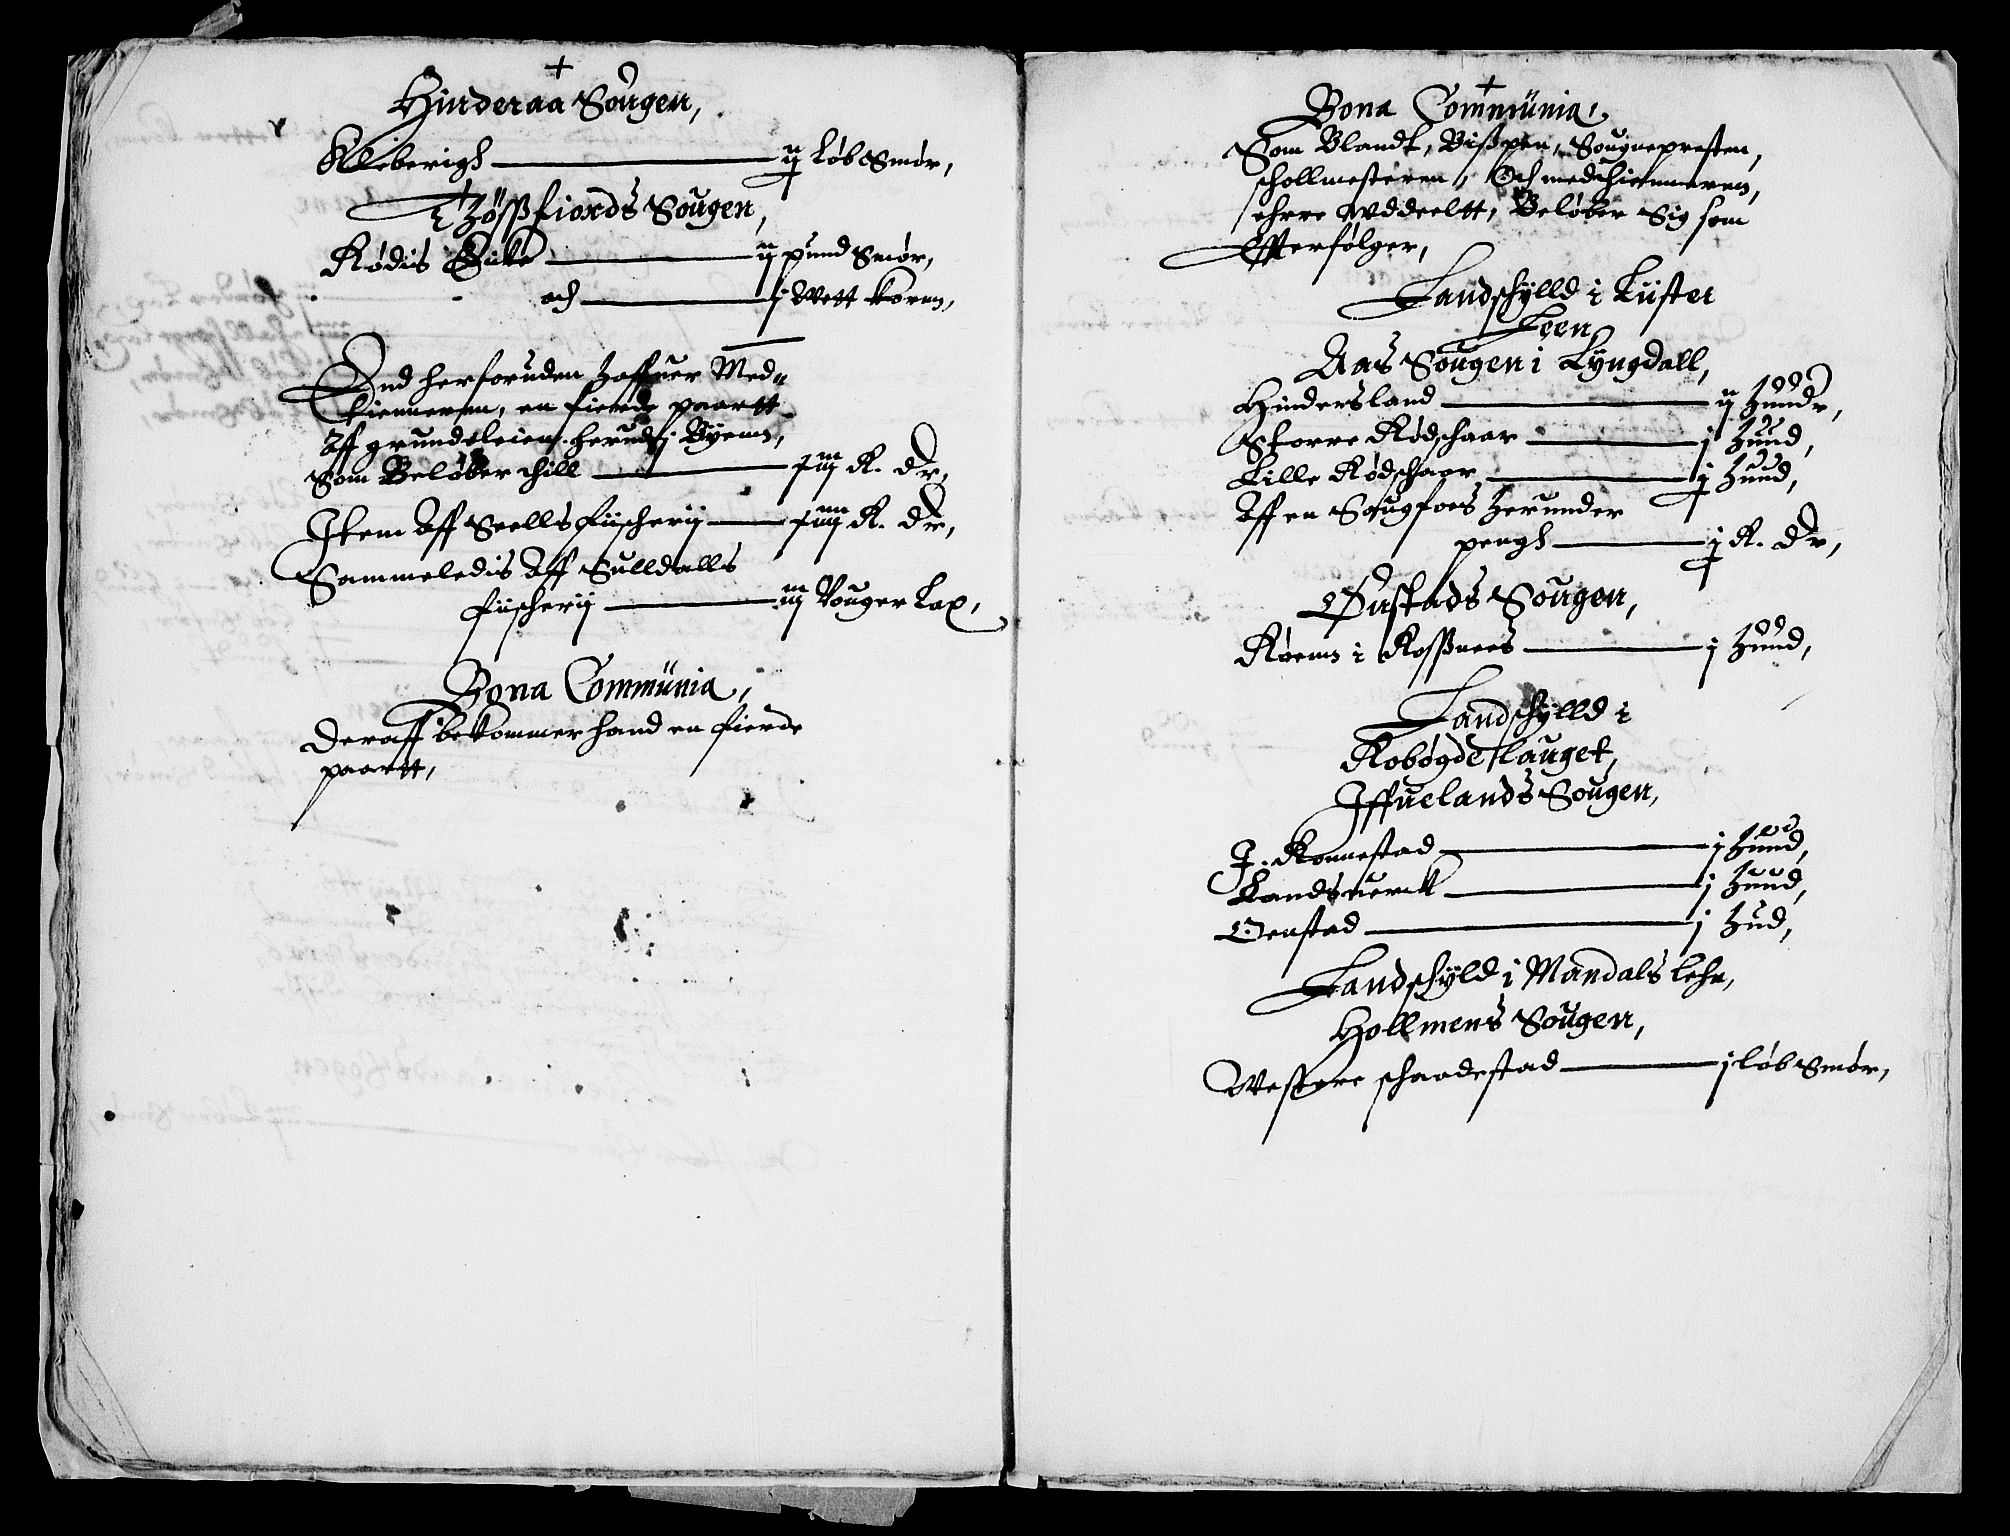 +
Hinderaa Sougen,
Kleberigh — ij løb Smør,
i Høssfiords Sougen,
Rødis Buke — ij pund Smør,
och — j Wett korn,
End herforuden haffuer Med-
thiennerenn, en fierde paartt
Aff grundeleien herudj Byenn,
Som Beløber thill — K. dr,
Item Aff Seells fiischerij — K. dr,
Sammeledis Aff Sulldalls
fiischerij — iij Vouger Lax,
Bona Communia,
Deraff bekommer hand en fierde
paartt,
+
Bona Communia,
Som Blandt, Bispen, Sougnepresten,
schollmesteren, Och medthiennerenn,
ehrre wddeeltt, Beløber Sig som
Efterfølger,
Landschylld i Liister
Leen
Aas Sougen i Lyngdall,
Hindersland — ij hudr,
Storre Rødschaar — j hud,
Lille Rødschaar — j hud,
Aff en Sougfoes herunder
pengh — j K. dr,
Øustads Sougen,
Røenn i Kossnees — j hud,
Landschylld i
Robøgdelauget,
Iffuelands Sougen,
I. Konnestad — j hud,
Landsuerck — j hud,
Oenstad — j hud,
Landschyld i Mandals lehn,
Hollmens Sougen,
Westere schaadestad — j løb Smør,